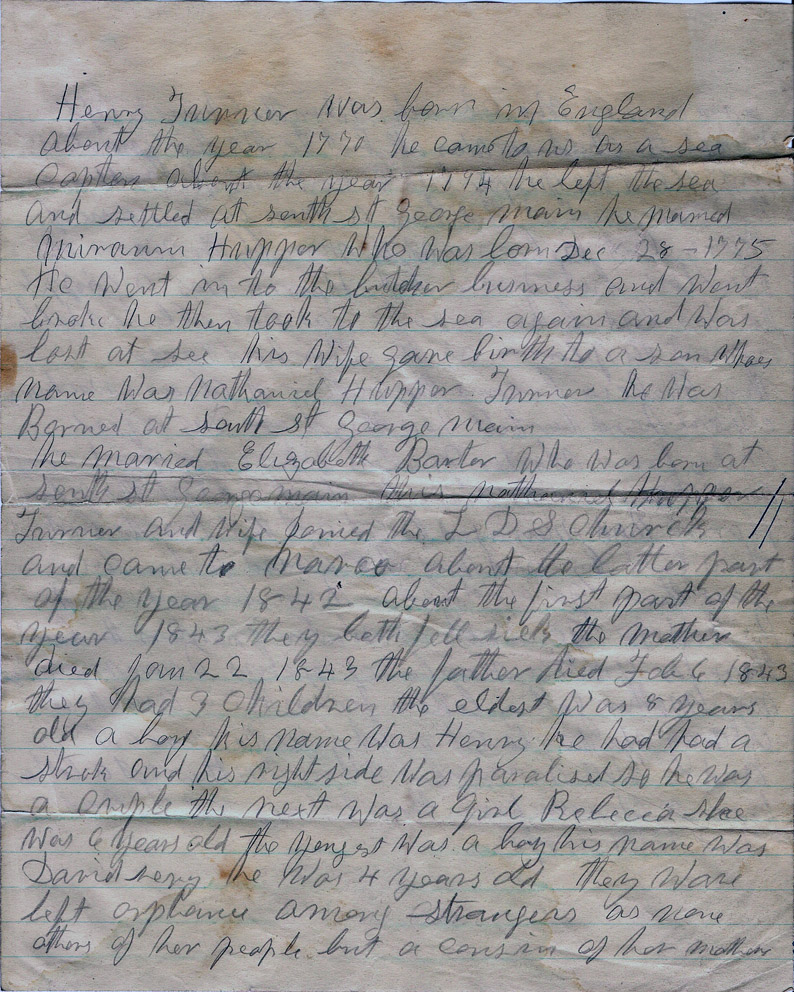 Henry Turner was born in England
about the year 1770 he came to us as a sea
Capten about the year 1794 he left the sea
and settled at south st george main he maried
Miraum Hupper who was born Dec 28-1775
He went in to the butcher business and went
broke he then took to the sea again and was
lost at see his wife gave birth to a son whoes
name was nathaniel Hupper Turner he was
Borned at south st george main
he married Elizabeth Barter who was born at
south st george main this nathaniel Hupper
Turner and wife Joined the L D S Church
and came to Navoo about the latter part
of the year 1842 about the first part of the
year 1843 they both fell sick the mother
died Jan 22 1843 the father died Feb 6 1843
they had 3 Children the eldest was 8 years
old a boy his name was Henry he had had a
strok and his right side was paralised so he was
a criple the next was a girl Rebecca shee
was 6 years old the yongest was a boy his name was
David he was 4 years old they ware
left orphance among strangers as none
others of her people but a cousin of her mother